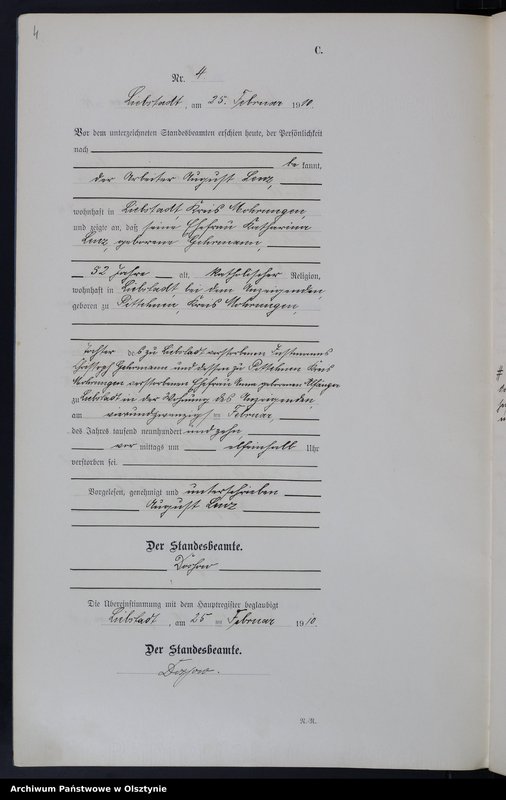 4
C.
Nr. 4
Liebstadt, am 25. Februar 1910.
Vor dem unterzeichneten Standesbeamten erschien heute, der Persönlichkeit
nach
be kannt,
der Arbeiter August Lenz,
wohnhaft in Liebstadt Kreis Mohrungen,
und zeigte an, daß seine Ehefrau Katharina
Lenz, geborene Gehrmann,
32 Jahre alt, katholischer Religion,
wohnhaft in Liebstadt bei dem Anzeigenden,
geboren zu Pittehnen, Kreis Mohrungen,
Tochter des zu Liebstadt verstorbenen Instmanns
Joseph Gehrmann und dessen zu Pittehnen Kreis
Mohrungen verstorbenen Ehefrau Anna geborenen
zu Liebstadt in der Wohnung des Anzeigenden,
am vierundzwanzigsten Februar,
des Jahres tausend neunhundert und zehn
vor mittags um elfeinhalb Uhr
verstorben sei.
Vorgelesen, genehmigt und unterschrieben
August Lenz
Der Standesbeamte.
Die Übereinstimmung mit dem Hauptregister beglaubigt
Liebstadt, am 25 ten Februar 1910
Der Standesbeamte.
R.-R.
Archiwum Państwowe w Olsztynie